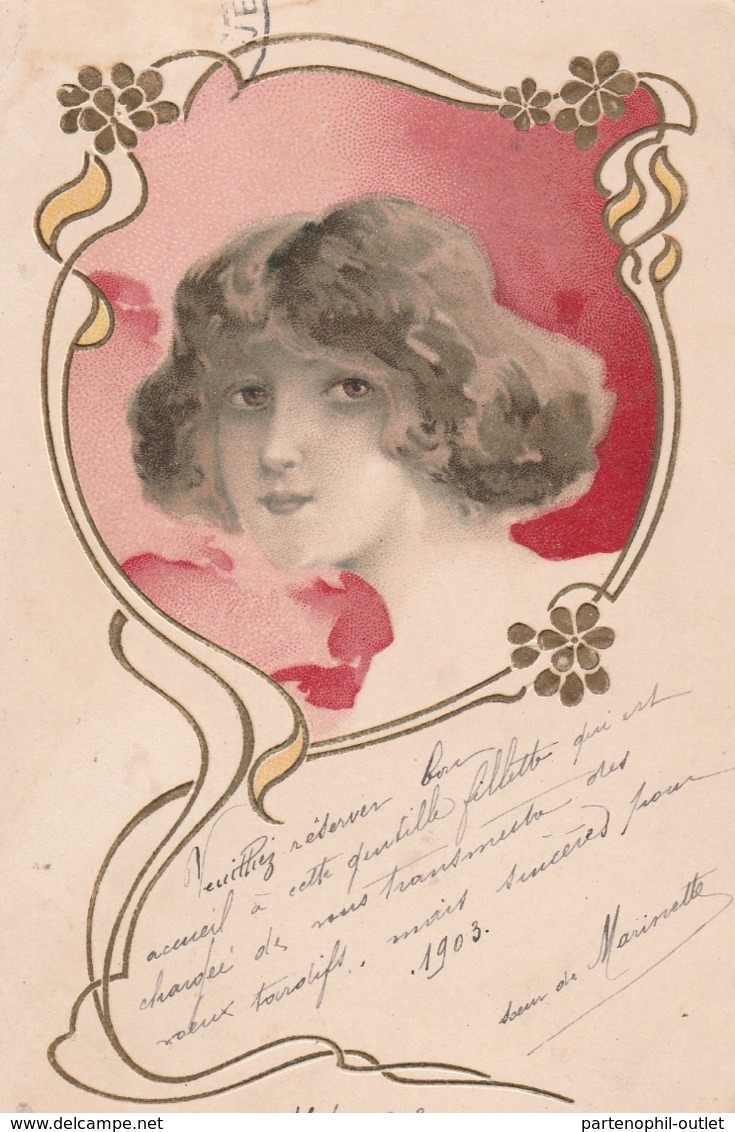 Veuillez réserver bon
accueil à cette gentille fillette qui est
chargée de vous transmettre des
vœux tardifs, mais sincères pour
.1903.
sœur de Marinette
partenophil-outlet